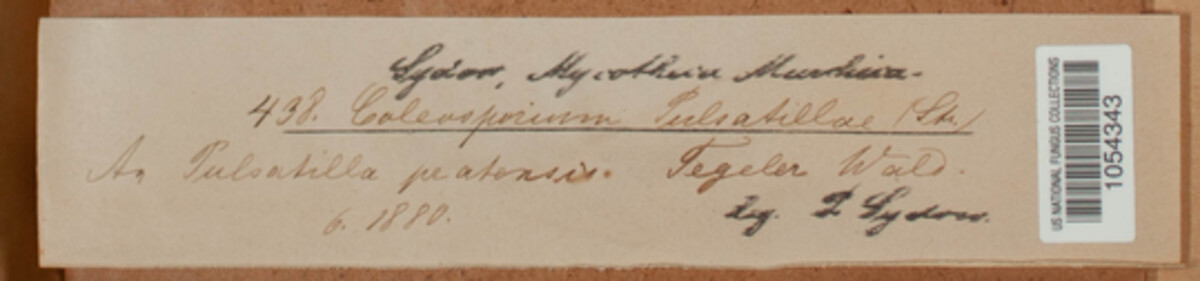 Sydow, Mycotheca Marchica.
438. Coleosporium Pulsatillae (Str.)
An Pulsatilla pratensis. Tegeler Wald.
6. 1880.
leg. P Sydow.
US NATIONAL FUNGUS COLLECTIONS
1054343